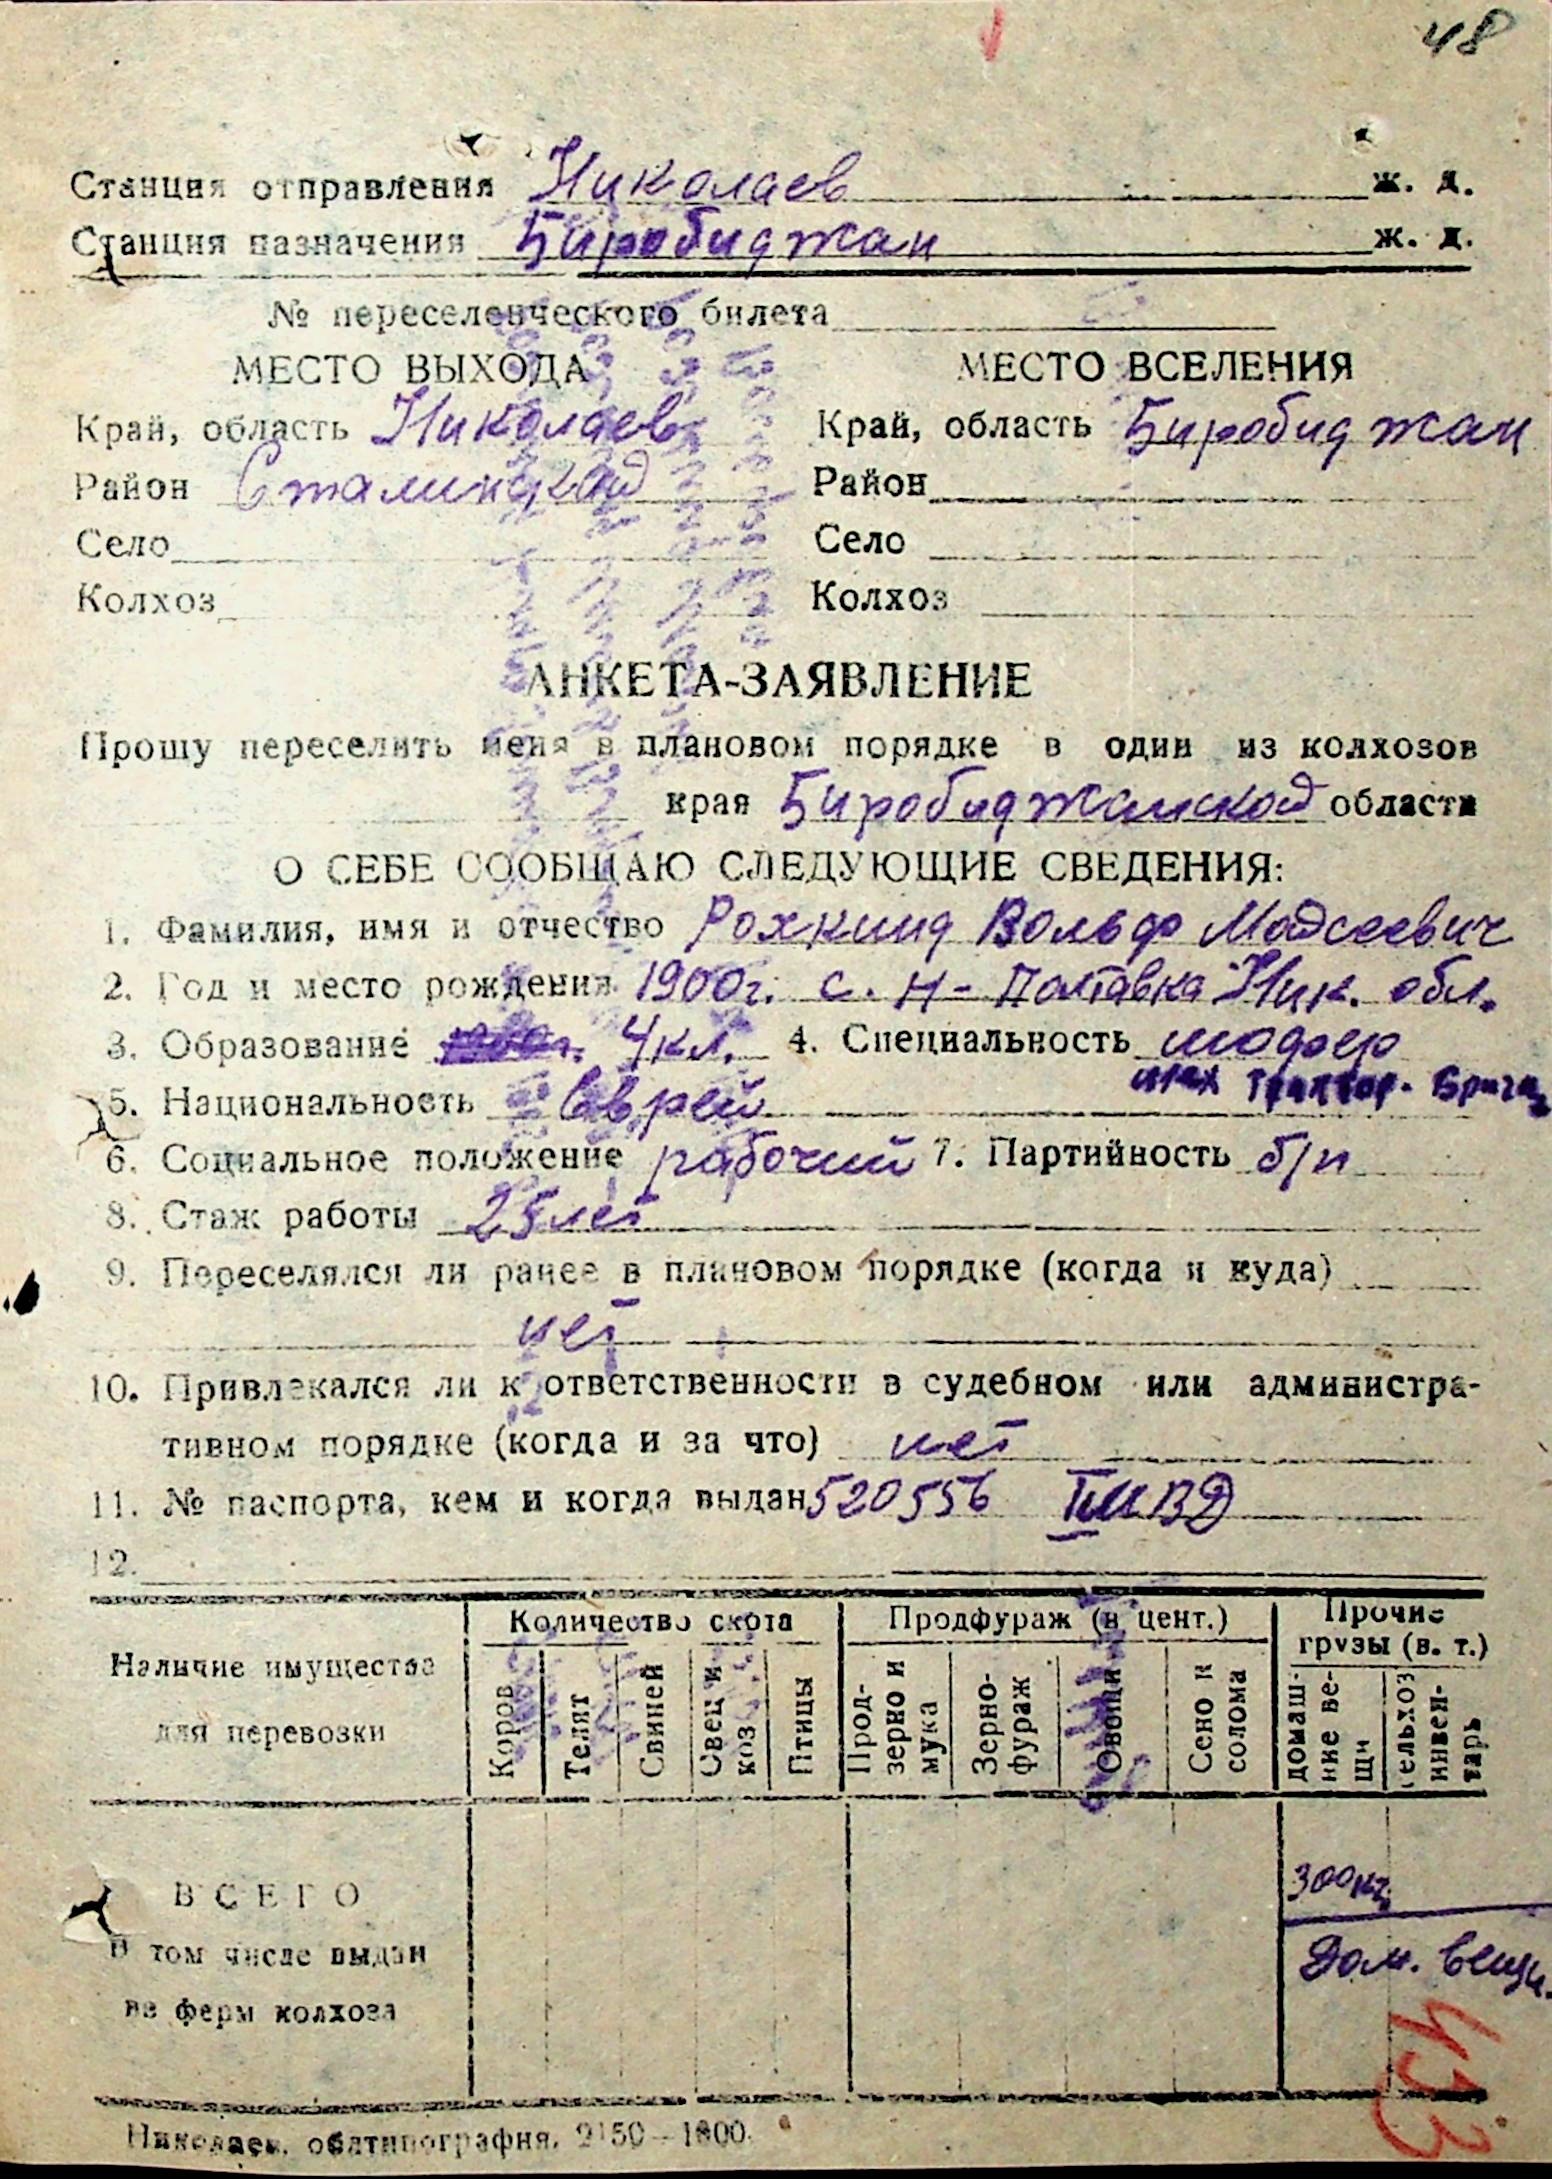 48
Станция отправления Николаев ж. д.
Станция назначения Биробиджан ж. д.
№ переселенческого билета
МЕСТО ВЫХОДА
Край, область Николаев
Район Сталинский
Село
Колхоз
МЕСТО ВСЕЛЕНИЯ
Край, область Биробиджан
Район
Село
Колхоз
АНКЕТА-ЗАЯВЛЕНИЕ
Прошу переселить меня в плановом порядке в один из колхозов
края Биробиджанской области
О СЕБЕ СООБЩАЮ СЛЕДУЮЩИЕ СВЕДЕНИЯ:
1. Фамилия, имя и отчество Рохкинд Вольф Мойсеевич
2. Год и место рождения 1900г. с. Н-Полтавка Ник. обл.
3. Образование 4кл. 4. Специальность шофер
мех трактор. бригад
5. Национальность Еврей
6. Социальное положение рабочий 7. Партийность б/п
8. Стаж работы 25 лет
9. Переселялся ли ранее в плановом порядке (когда и куда)
нет
10. Привлекался ли к ответственности в судебном или администра-
тивном порядке (когда и за что) нет
11. № паспорта, кем и когда выдан 520556 II МВД
12.
Наличие имущества
для перевозки
Количество скота
Коров
Телят
Свиней
Овец и
коз
Птицы
Продфураж (в цент.)
Прод-
зерно и
мука
Зерно-
фураж
Овощи
Сено и
солома
Прочие
грузы (в. т.)
домаш-
ние ве-
щи
сельхоз
инвен-
тарь
ВСЕГО
В том числе выдан
на ферм колхоза
300кг.
Дом. вещи.
433
Николаев, облтипография. 2150—1800.